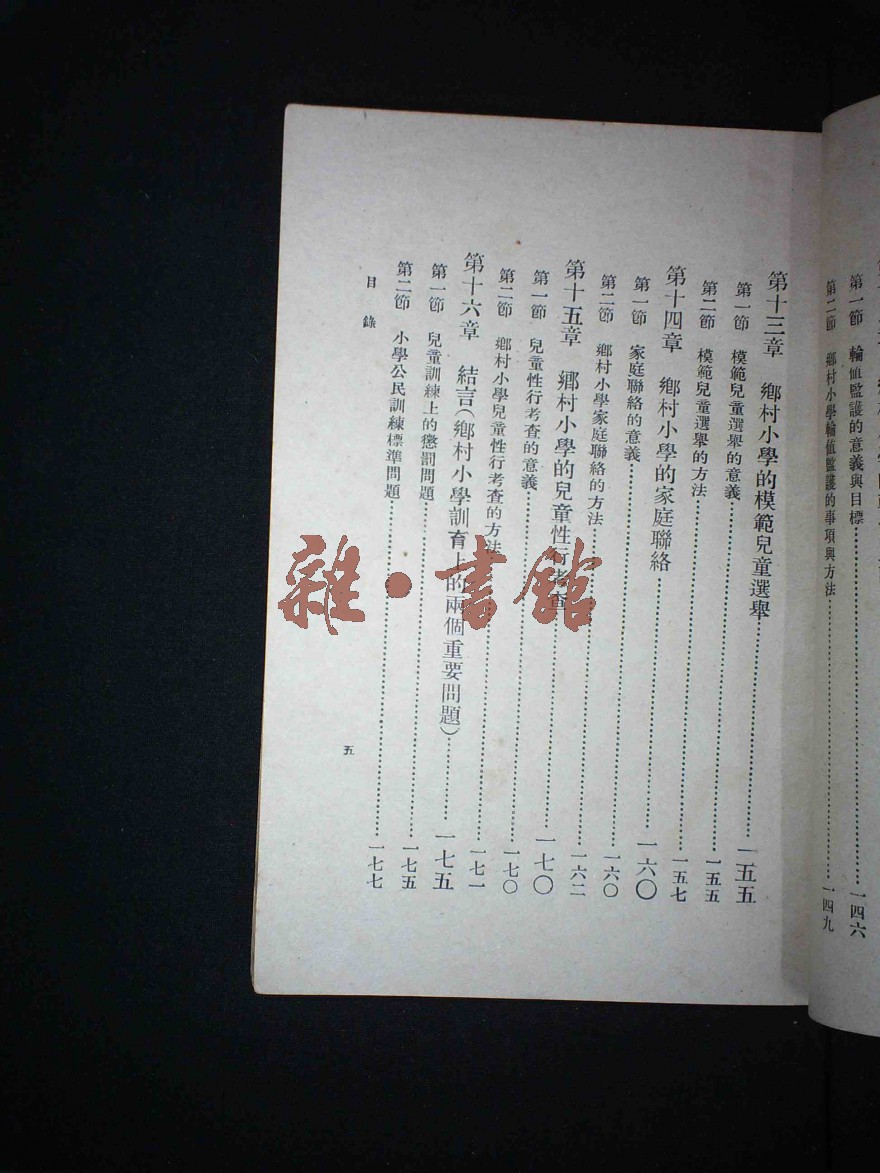 第一節　輪值監護的意義與目標……一四六
第二節　鄉村小學輪值監護的事項與方法……一四九
第十三章　鄉村小學的模範兒童選舉……一五五
第一節　模範兒童選舉的意義……一五五
第二節　模範兒童選舉的方法……一五七
第十四章　鄉村小學的家庭聯絡……一六〇
第一節　家庭聯絡的意義……一六〇
第二節　鄉村小學家庭聯絡的方法……一六二
第十五章　鄉村小學的兒童性行考查……一七〇
第一節　兒童性行考查的意義……一七〇
第二節　鄉村小學兒童性行考查的方法……一七一
第十六章　結言（鄉村小學訓育上的兩個重要問題）……一七五
第一節　兒童訓練上的懲罰問題……一七五
第二節　小學公民訓練標準問題……一七七
目錄
五
雜·書館